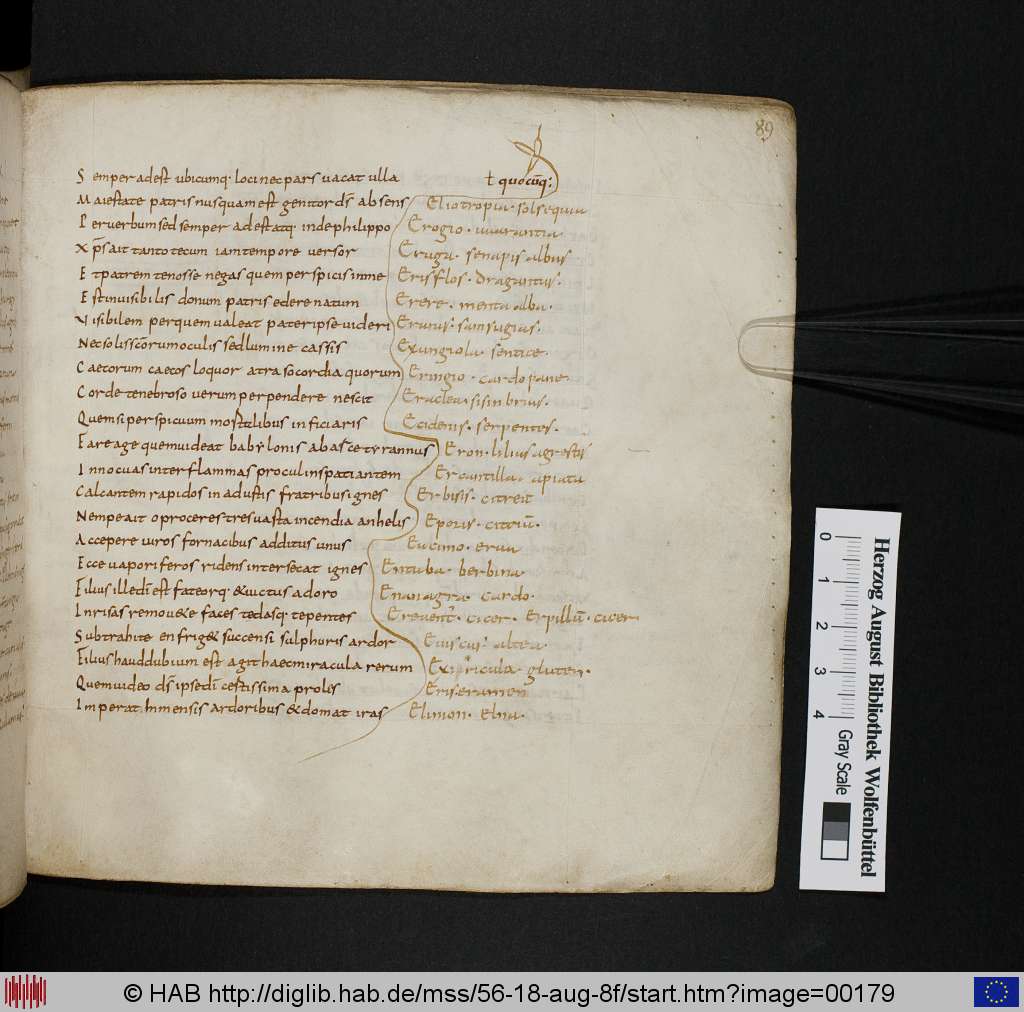 89
Semper adest ubicumq; loci nec pars uacat ulla
ł quocūq;
Maiestate patris nusquam est genitor ds̄ absens
Per uerbum sed semper adest atq; inde philippo
Xp̄s ait tanto tecum iam tempore uersor
Et patrem te nosse negas quem perspicis in me
Est inuisibilis donum patris edere natum
Visibilem per quem ualeat pater ipse uideri
Nec solis sc̄orum oculis sed lumine cassis
Caecorum caecos loquor atra socordia quorum
Corde tenebroso uerum perpendere nescit
Quem si perspicuum mortalibus infitiaris
Fare age quem uideat babylonis ab arce tyrannus
Innocuas inter flammas procul inspatiantem
Calcantem rapidos inadustis fratribus ignes
Nempe ait o proceres tres uasta incendia anhelis
Accepere uiros fornacibus additus unus
Ecce uaporiferos ridens intersecat ignes
Filius ille dī est fateorq; & uictus adoro
Inrisas remou&e faces tedasq; tepentes
Subtrahite en frig& succensi sulphuris ardor
Filius haud dubium est agit haec miracula rerum
Quem uideo ds̄ ipse dī certissima prolis
Imperat Inmensis ardoribus & domat iras
Eliotropia. solsequia
Erogio.
Eruga. senapis albus
Eris flos. draguntus.
Erere. menta alba.
Eramus. sansugias.
Exungiola. sentice.
Eringio. cardo pane.
Eraclea. sisinbrius.
Eciderus. serpentes.
Eron. lilius agrestis
apiata
Erbisis. citreū
Eporis. citriū.
Eucimo. erua
Entuba. berbina
Enanagra. cardo.
cicer. Erpillū. cicer
Euiscus. altea.
gluten.
Eriseramen
Elimon. elna.
Herzog August Bibliothek Wolfenbüttel
0 1 2 3 4 Gray Scale
© HAB http://diglib.hab.de/mss/56-18-aug-8f/start.htm?image=00179